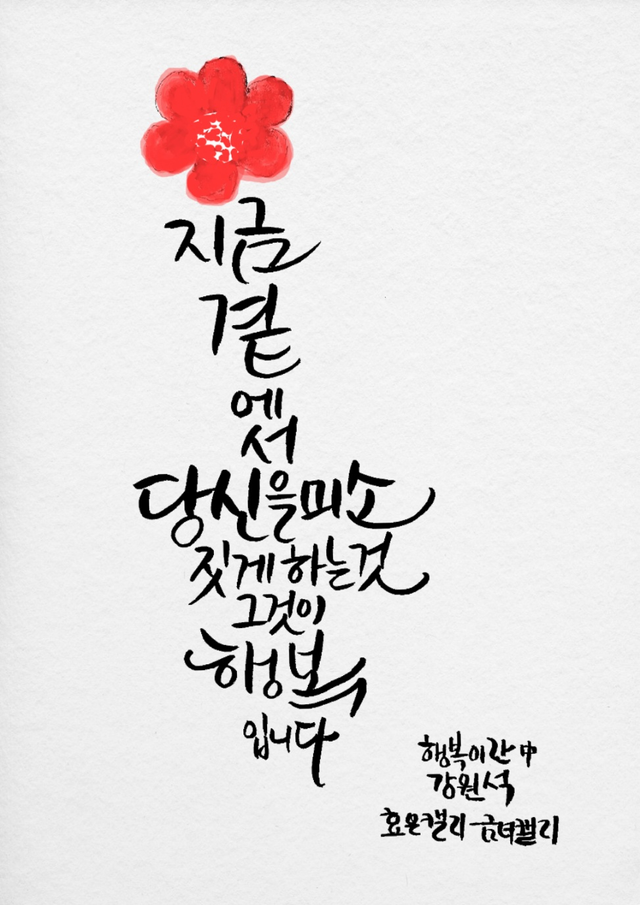 지금
곁
에
서
당신을미소
짓게 하는것
그것이
행복
입니다
행복이란 中
강원석
효온캘리 금녀캘리